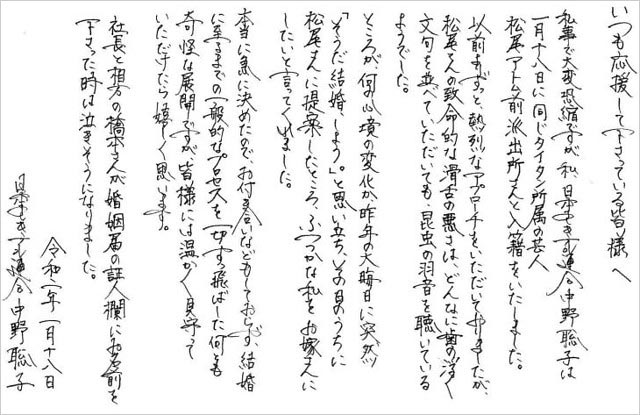 いつも応援して下さっている皆様へ
私事で大変恐縮ですが、私、日本エレキテル連合中野聡子は
一月十八日に同じタイタン所属の芸人
松尾アトム前派出所さんと入籍をいたしました。
以前よりずっと、熱烈なアプローチをいただいておりましたが、
松尾さんの致命的な滑舌の悪さは、どんなに歯の浮く
文句を並べていただいても、昆虫の羽音を聴いている
ようでした。
ところが、何の心境の変化か昨年の大晦日に突然ッ
「そうだ結婚、しよう。」と思い立ち、その日のうちに
松尾さんに提案したところ、ふつつかな私をお嫁さんに
したいと言ってくれました。
本当に急に決めたので、お付き合いなどもしておらず、結婚
に至るまでの一般的なプロセスを一切す飛ばした何とも
奇怪な展開ですが、皆様には温かく見守って
いただけたら嬉しく思います。
社長と相方の橋本さんが婚姻届の証人欄にお名前を
下さった時は泣きそうになりました。
令和二年一月十八日
日本エレキテル連合 中野聡子